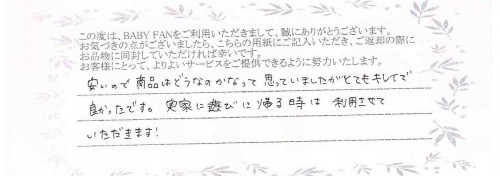 この度は、BABY FANをご利用いただきまして、誠にありがとうございます。
お気づきの点がございましたら、こちらの用紙にご記入いただき、ご返却の際に
お品物に同封していただければ幸いです。
お客様にとって、よりよいサービスをご提供できるように努力いたします。
安いので商品はどうなのかなって思っていましたがとてもキレイで
良かったです。実家に遊びに帰る時は利用させて
いただきます!